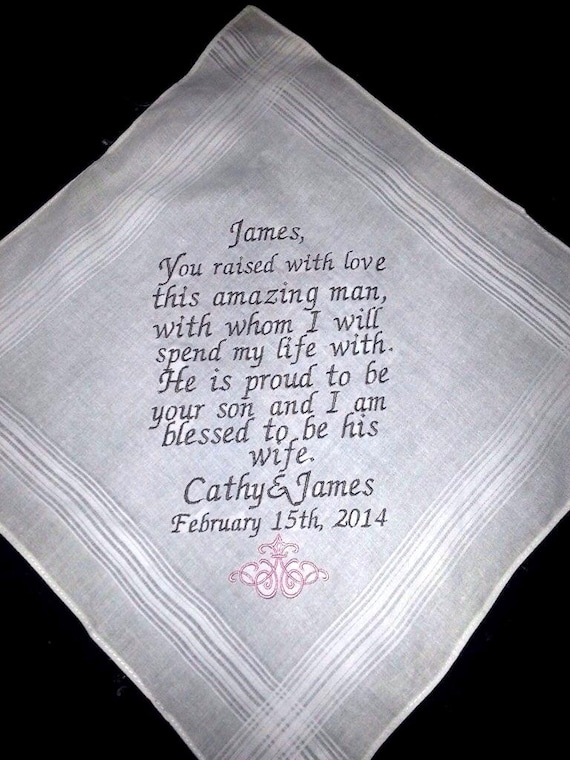 James,
You raised with love
this amazing man,
with whom I will
spend my life with.
He is proud to be
your son and I am
blessed to be his
wife.
Cathy&James
February 15th, 2014